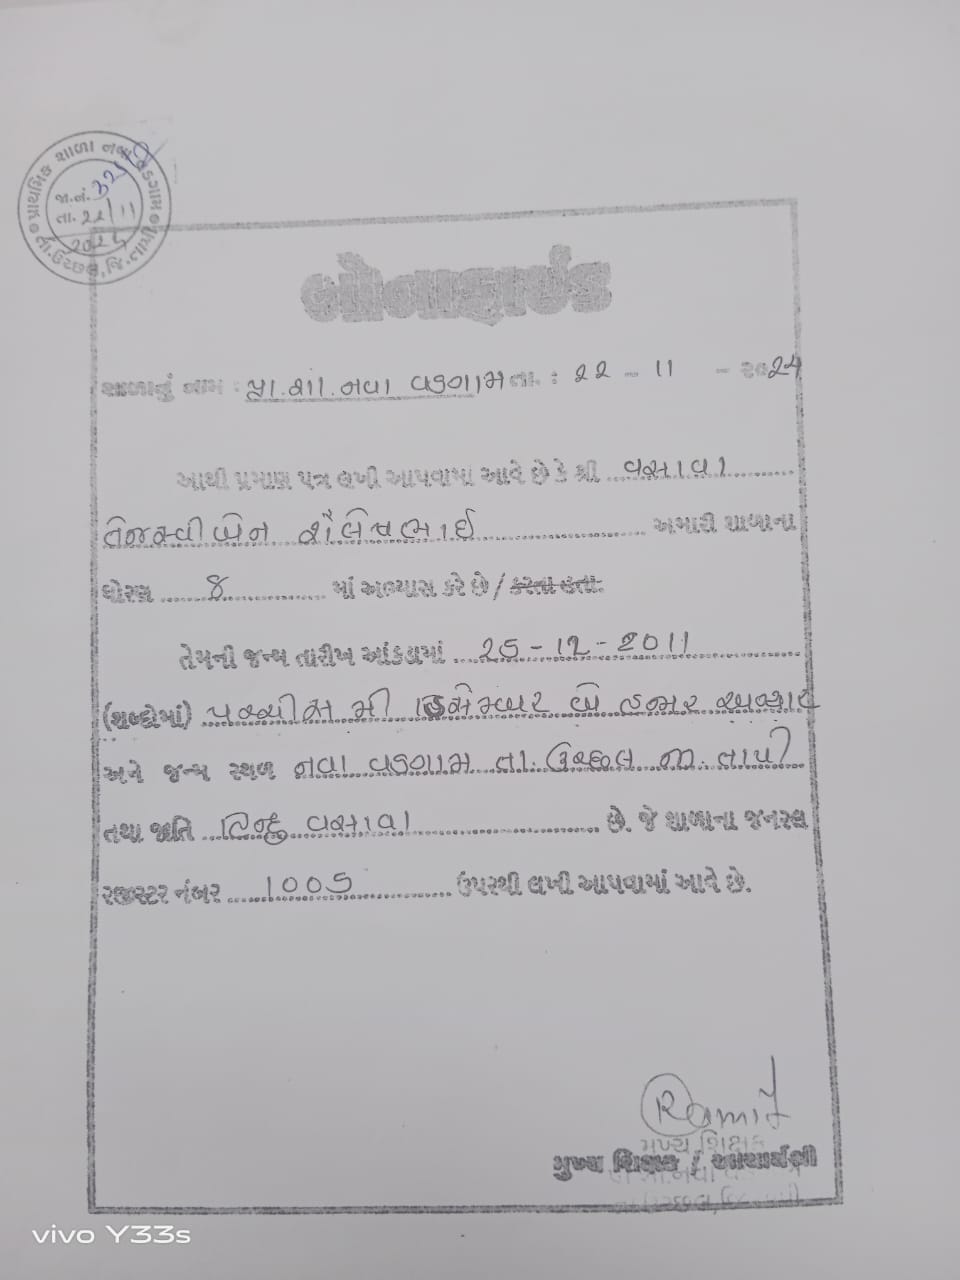 પ્રાથમિક શાળા નવા વડગામ
જા.નં.
તા. 22/11
બોનાફાઈડ
શાળાનું નામ : પ્રા.શા. નવા વડગામ તા. : 22 - 11 - ૨૦24
આથી પ્રમાણ પત્ર લખી આપવામાં આવે છે કે શ્રી વસાવા
તેજસ્વીબેન શૈલેષભાઈ અમારી શાળાના
ધોરણ 8 માં અભ્યાસ કરે છે / કરતા હતા.
તેમની જન્મ તારીખ આંકડામાં 25-12-2011
(શબ્દોમાં) પચ્ચીસ મી ડિસેમ્બર બે હજાર અગ્યાર
અને જન્મ સ્થળ નવા વડગામ તા. ઉચ્છલ જી. તાપી
તથા જાતિ હિન્દુ વસાવા છે. જે શાળાના જનરલ
રજીસ્ટર નંબર 1005 ઉપરથી લખી આપવામાં આવે છે.
મુખ્ય શિક્ષક
મુખ્ય શિક્ષક / આચાર્યશ્રી
vivo Y33s